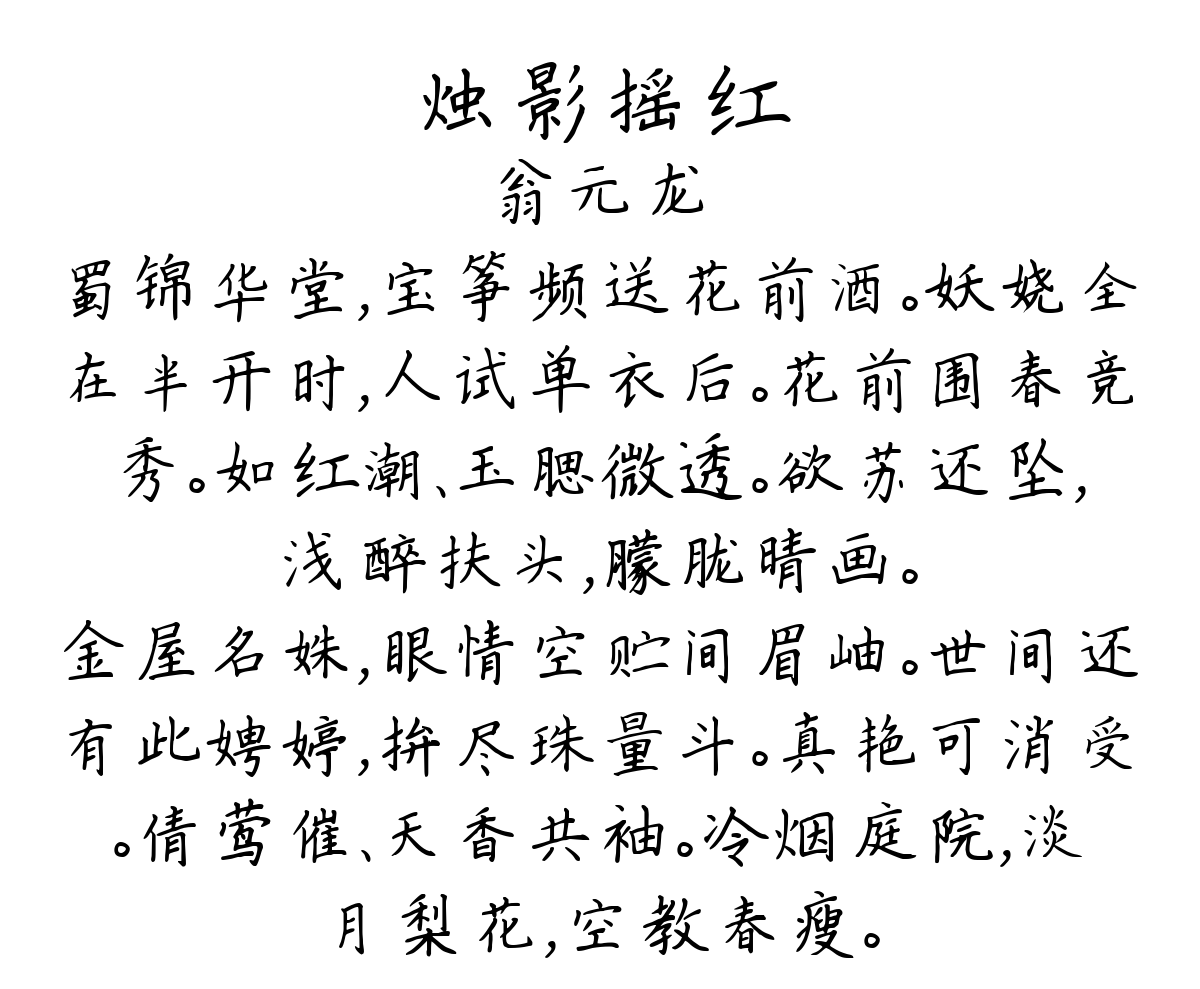 烛影摇红
翁元龙
蜀锦华堂,宝筝频送花前酒。妖娆全
在半开时,人试单衣后。花前围春竞
秀。如红潮、玉腮微透。欲苏还坠,
浅醉扶头,朦胧晴画。
金屋名姝,眼情空贮间眉岫。世间还
有此娉婷,拚尽珠量斗。真艳可消受
。倩莺催、天香共袖。冷烟庭院,淡
月梨花,空教春瘦。